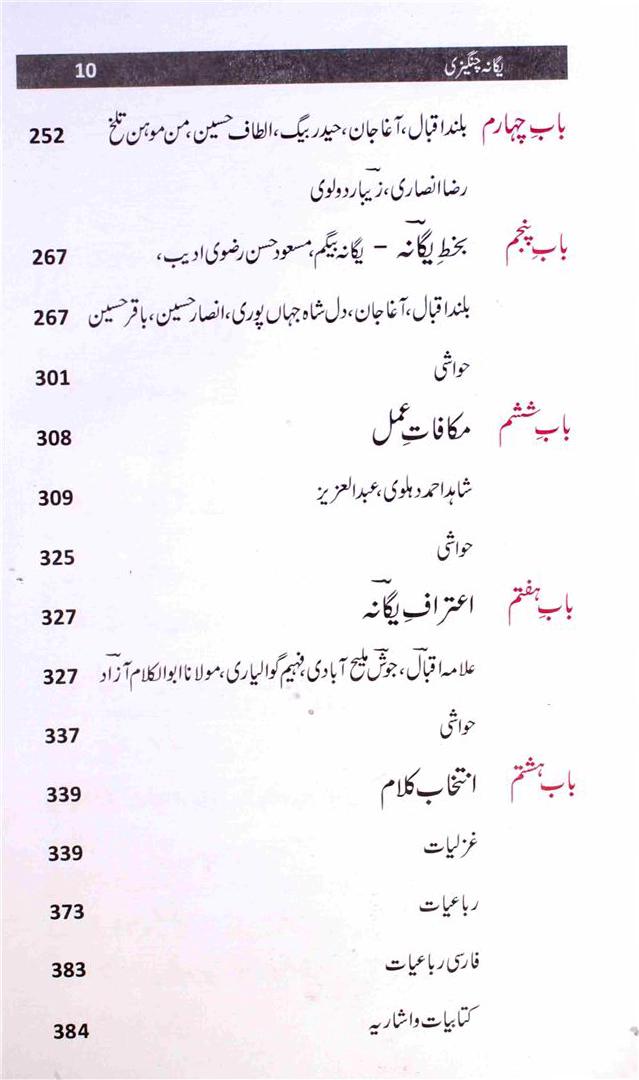 یگانہ چنگیزی 10
بابِ چہارم بلند اقبال، آغا جان، حیدر بیگ، الطاف حسین، من موہن تلخ 252
رضا انصاری، زیبا ردولوی
بابِ پنجم بخطِ یگانہ – یگانہ بیگم، مسعود حسن رضوی ادیب، 267
بلند اقبال، آغا جان، دل شاہ جہاں پوری، انصار حسین، باقر حسین 267
حواشی 301
بابِ ششم مکافاتِ عمل 308
شاہد احمد دہلوی، عبدالعزیز 309
حواشی 325
بابِ ہفتم اعترافِ یگانہ 327
علامہ اقبال، جوش ملیح آبادی، فہیم گوالیاری، مولانا ابوالکلام آزاد 327
حواشی 337
باب ہشتم انتخاب کلام 339
غزلیات 339
رباعیات 373
فارسی رباعیات 383
کتابیات و اشاریہ 384